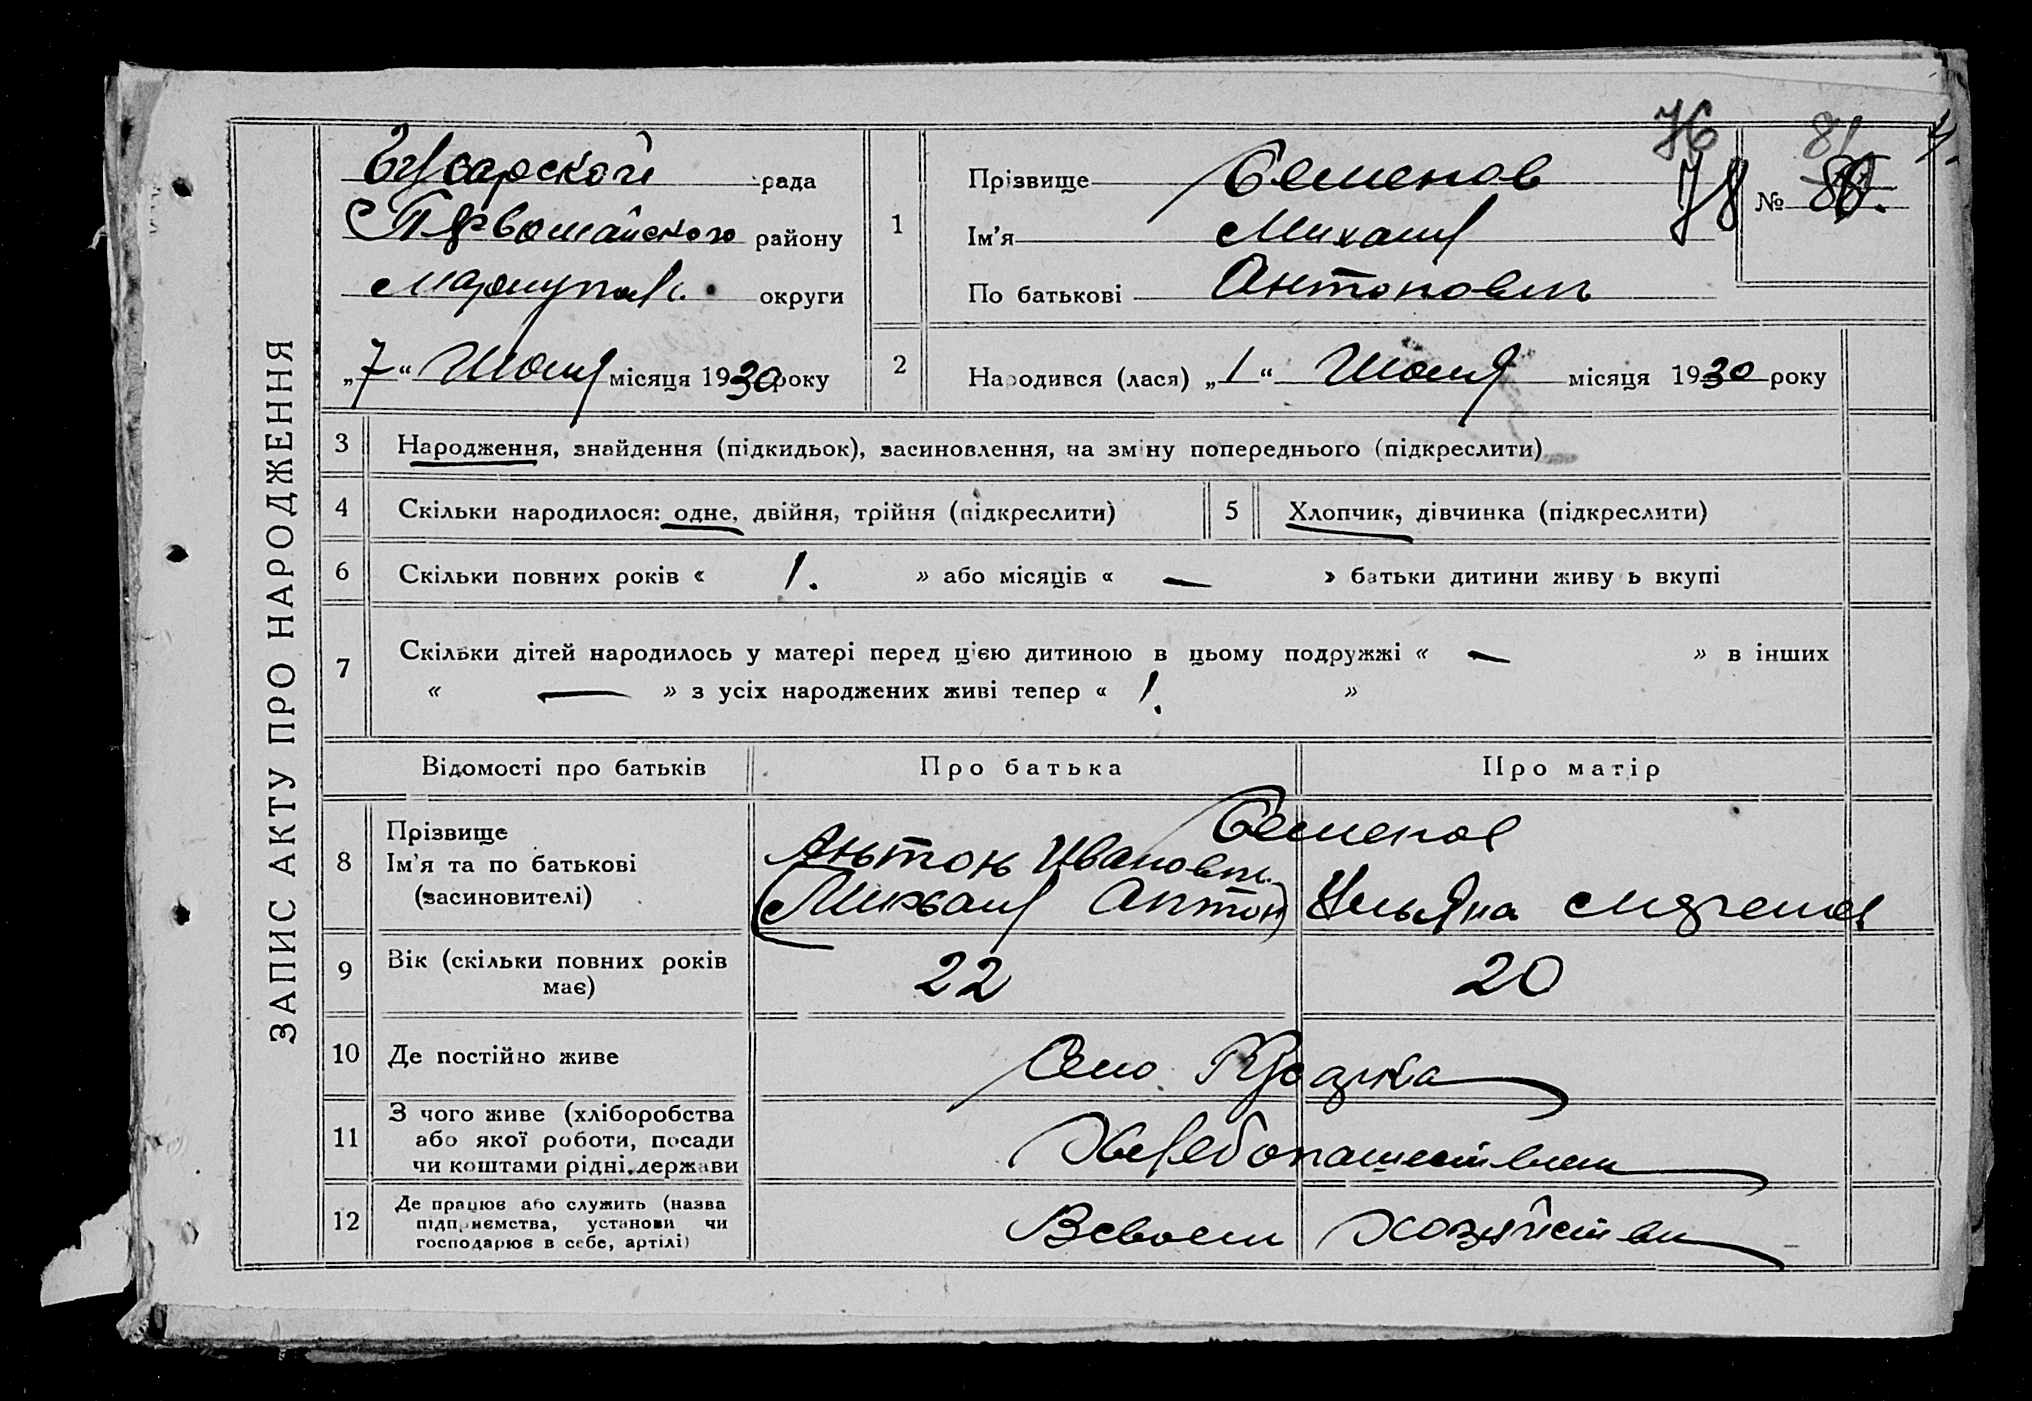 ЗАПИС АКТУ ПРО НАРОДЖЕННЯ
76
78
81
рада
Первомайского району
Мариупол. округи
„7“ Июля місяця 1930 року
1
Прізвище Семенов
Ім'я Михаил
По батькові Антонович
№ 80.
2
Народився (лася) „1“ Июля місяця 1930 року
3 Народження, знайдення (підкидьок), засиновлення, на зміну попереднього (підкреслити)
4 Скільки народилося: одне, двійня, трійня (підкреслити)
5 Хлопчик, дівчинка (підкреслити)
6 Скільки повних років « 1. » або місяців « — » батьки дитини живу ь вкупі
7 Скільки дітей народилось у матері перед цією дитиною в цьому подружжі « — » в інших
« — » з усіх народжених живі тепер « 1. »
Відомості про батьків
Про батька
Про матір
8 Прізвище
Ім'я та по батькові
(засиновителі)
Семенов
Антон Иванович
(Михаил Антон)
Ульяна
9 Вік (скільки повних років
має)
22
20
10 Де постійно живе
Село
11 З чого живе (хліборобства
або якої роботи, посади
чи коштами рідні, держави
12 Де працює або служить (назва
підприємства, установи чи
господарює в себе, артілі)
Всвоем хозяйстви